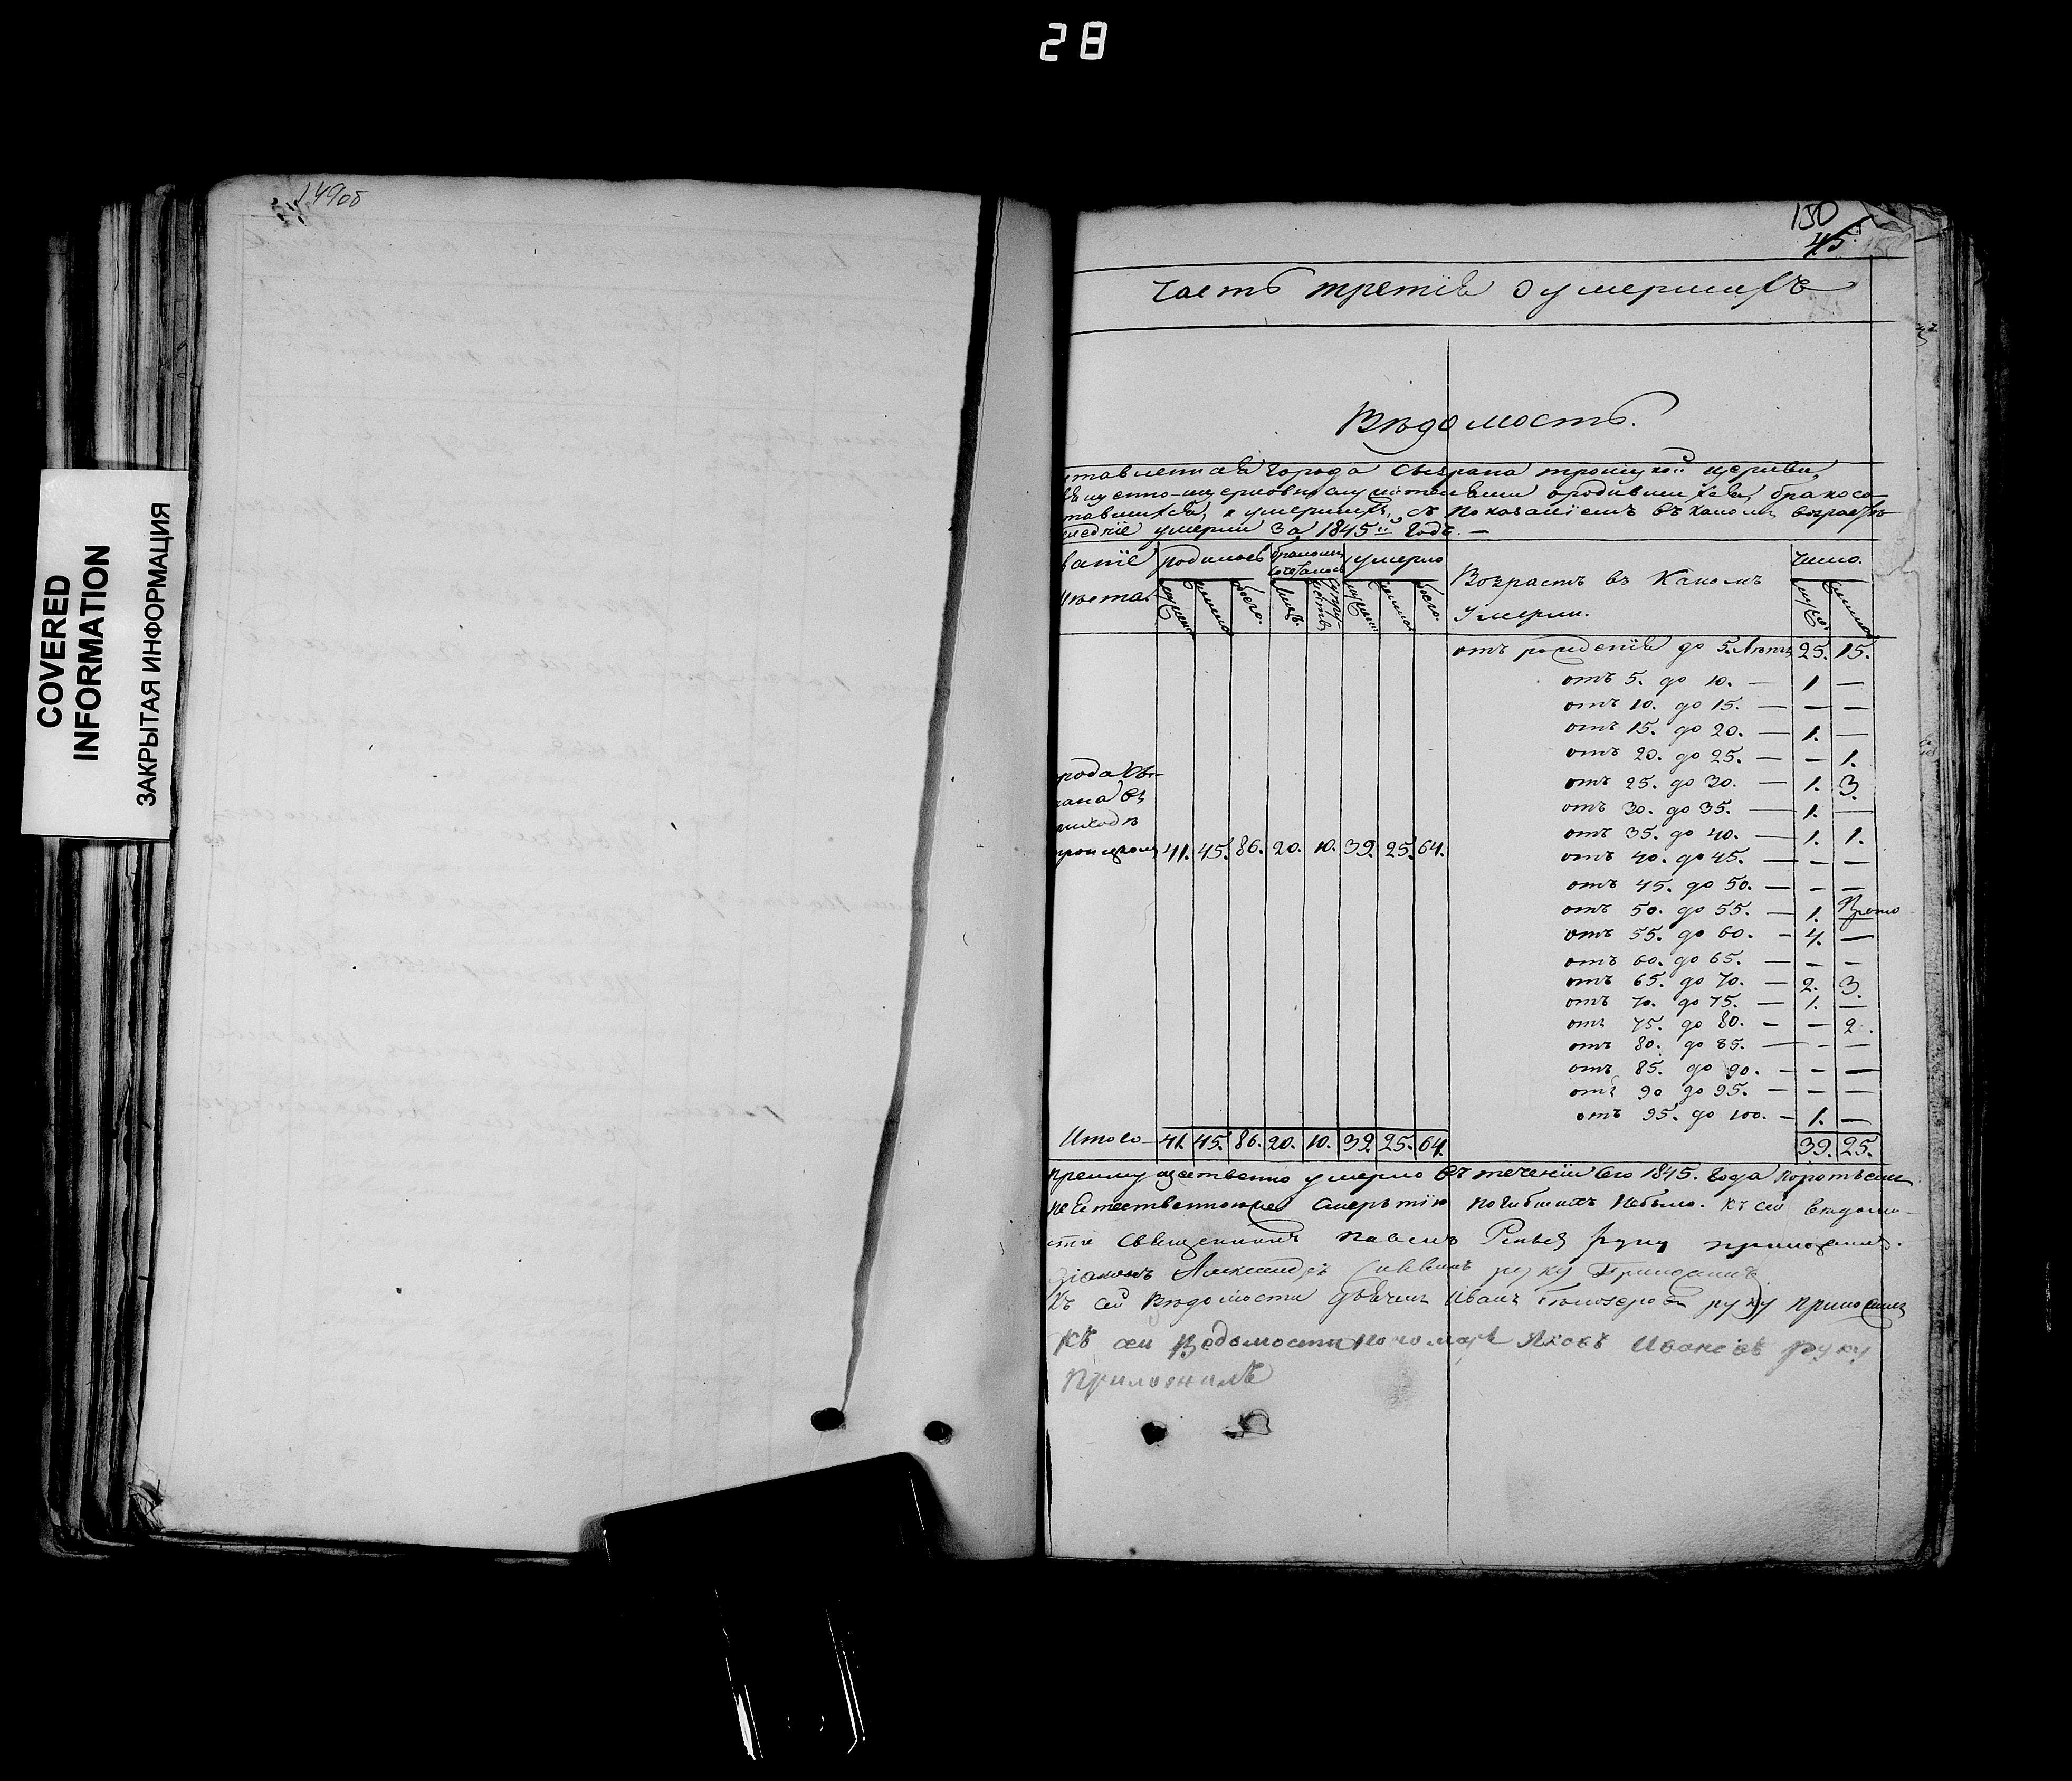 28
COVERED
INFORMATION
ЗАКРЫТАЯ ИНФОРМАЦИЯ
149об
150
45.
Часть третія о умершихъ
Вѣдомость.
ставленная города Сызрана троицкой церкви
священно-церковнослужителями ородившихся, бракосо-
тавшихся, и умершихъ, съ показаніемъ въ какомъ возрастѣ
следніе умерли за 1845й годъ. —
ваніе родилось бракомъ сочеталось умерло Возрастъ въ какомъ умерли. Число.
мѣста. мужеска женска всего. лицъ. супружествъ мужеска женска всего. муже. женска
отъ рожденія до 5. лѣтъ 25. 15.
отъ 5. до 10. — 1. —
отъ 10. до 15. — — —
отъ 15. до 20. — 1. —
отъ 20. до 25. — — 1.
отъ 25. до 30. — 1. 3.
отъ 30. до 35. — 1. —
отъ 35. до 40. — 1. 1.
отъ 40. до 45. — — —
отъ 45. до 50. — — —
отъ 50. до 55. — 1. —
отъ 55. до 60. — 4. —
отъ 60. до 65. — — —
отъ 65. до 70. — 2. 3.
отъ 70. до 75. — 1. —
отъ 75. до 80. — — 2.
отъ 80. до 85. — — —
отъ 85. до 90. — — —
отъ 90 до 95. — — —
отъ 95. до 100. — 1. —
рода Сы-
рана въ
приходѣ
троицкомъ 41. 45. 86. 20. 10. 39. 25. 64.
Итого — 41. 45. 86. 20. 10. 39. 25. 64. 39. 25.
преимущественно умерло въ теченіи сего 1845. года
неестественною смертію погибшихъ небыло. къ сей вѣдомо-
сти Священникъ Павелъ руку приложилъ.
діаконъ Александръ руку Приложилъ
Къ сей вѣдомости дьячекъ Иванъ Бѣлозеровъ руку приложилъ
Къ сей Ведомости пономарь Яковъ Ивановъ руку
приложилъ